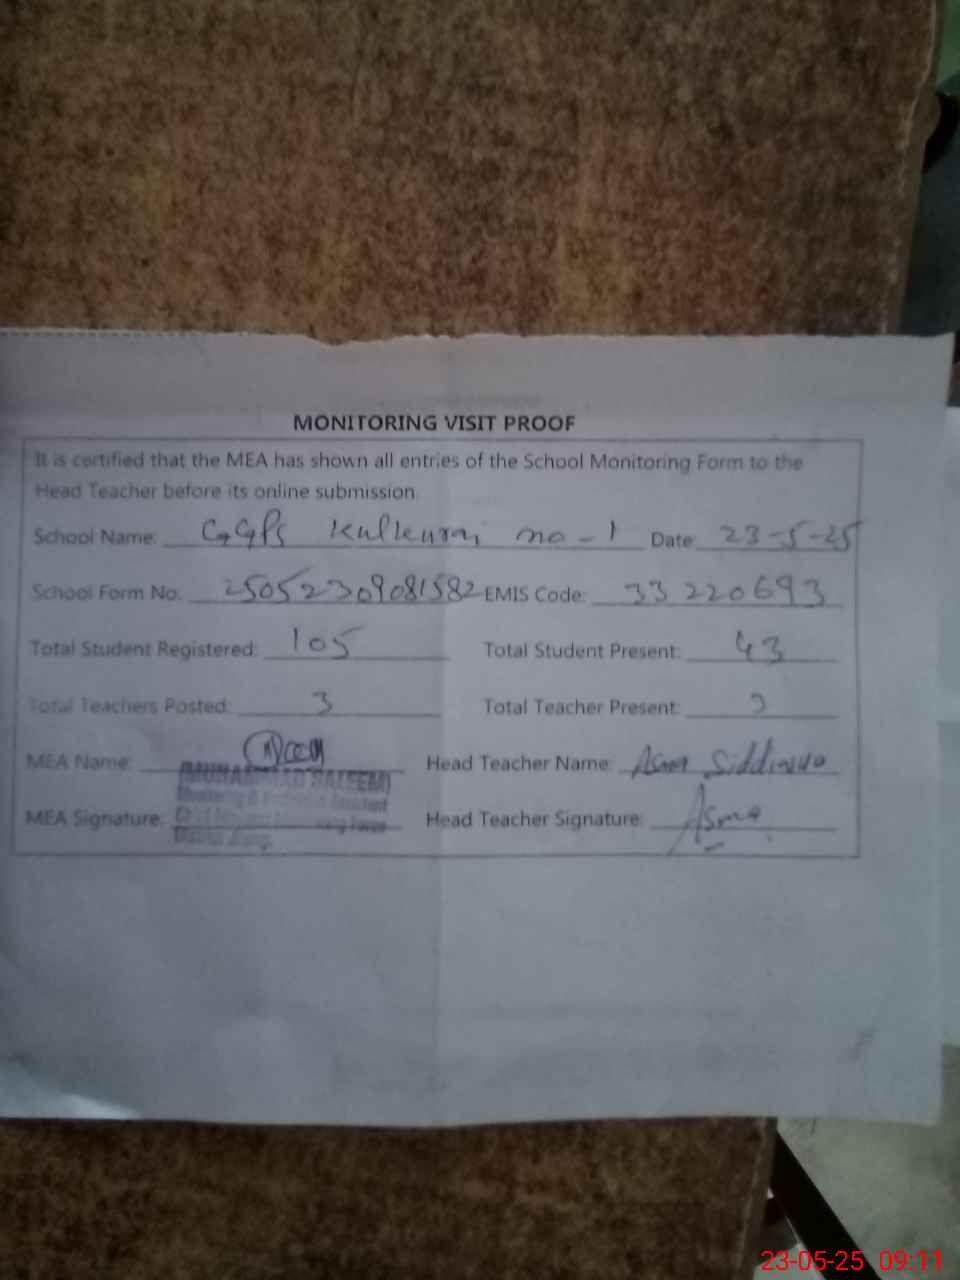 MONITORING VISIT PROOF
It is certified that the MEA has shown all entries of the School Monitoring Form to the
Head Teacher before its online submission.
School Name: GGPS no - 1 Date: 23-5-25
School Form No: 25052309081582 EMIS Code: 33220693
Total Student Registered: 105 Total Student Present: 43
Total Teachers Posted: 3 Total Teacher Present: 3
MEA Name: Head Teacher Name: Asma Siddiqua
(MUHAMMAD SALEEM)
Monitoring & Evaluation Assistant
MEA Signature: Head Teacher Signature: Asma
23-05-25 09:11